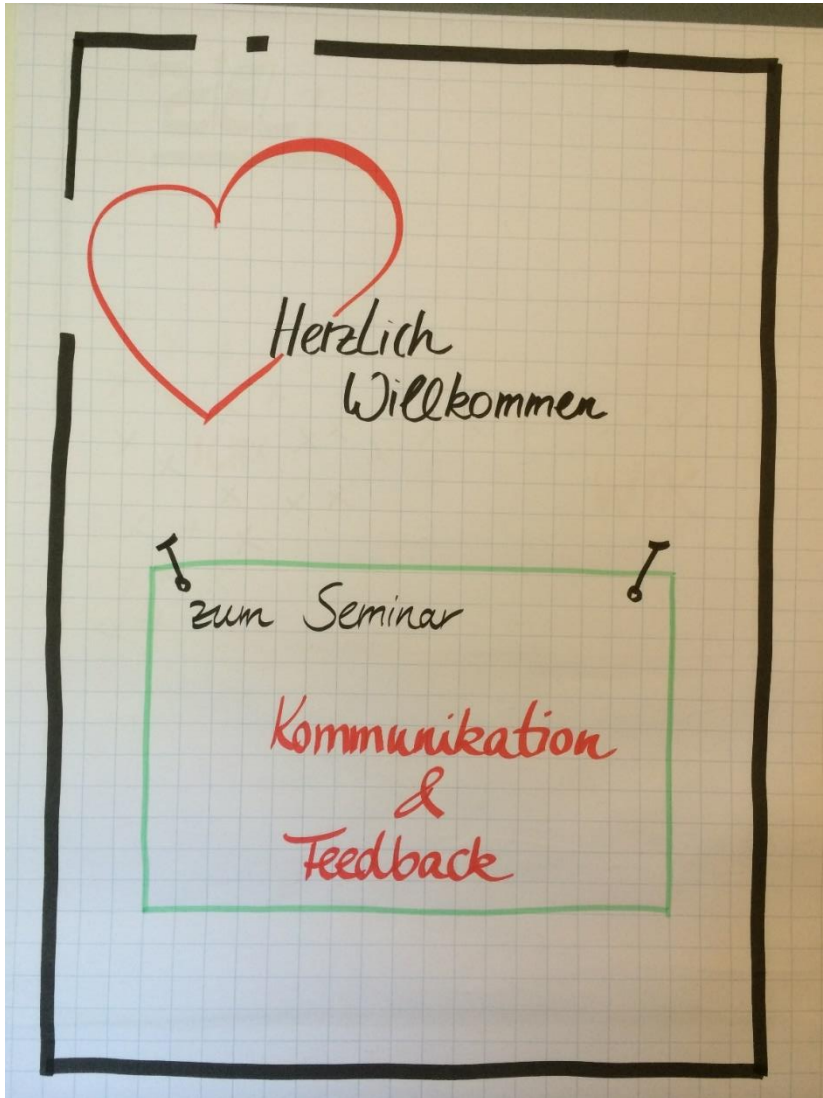 Herzlich
Willkommen
zum Seminar
Kommunikation
&
Feedback